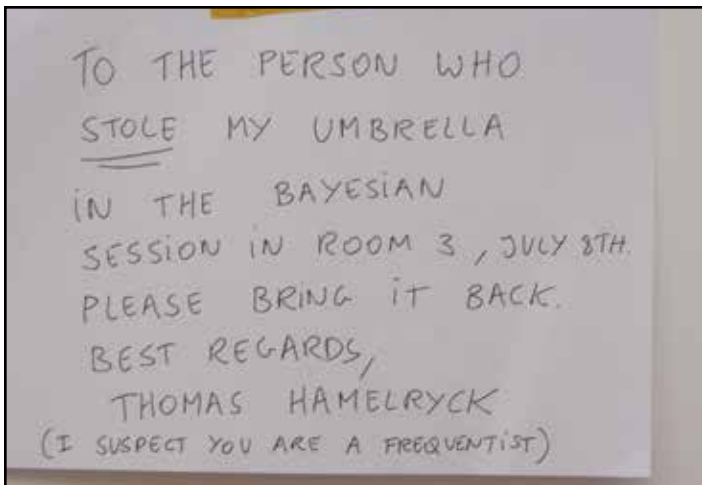 TO THE PERSON WHO
STOLE MY UMBRELLA
IN THE BAYESIAN
SESSION IN ROOM 3, JULY 8TH.
PLEASE BRING IT BACK.
BEST REGARDS,
THOMAS HAMELRYCK
(I SUSPECT YOU ARE A FREQUENTIST)